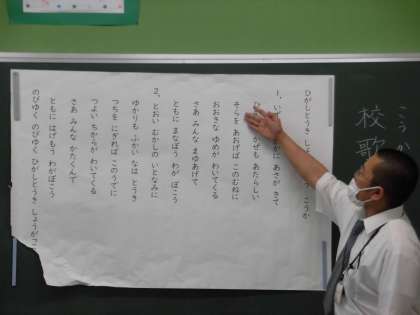 こうか
校歌
ひがしとうき しょ こうか
1、い かに あさが きて
ひ かぜも あたらしい
そらを あおげば このむねに
おおきな ゆめが わいてくる
さあ みんな まゆあげて
ともに まなぼう わが ぼこう
2、とおい むかしの いとなみに
ゆかりも ふかい なは とうき
つちを にぎれば このうでに
つよい ちからが わいてくる
さあ みんな かたくんで
ともに はげもう わがぼこう
のびゆく のびゆく ひがしとうき しょうがっこ